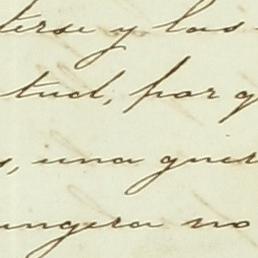 terse y los
tud, por q
s, una guer
ungera no